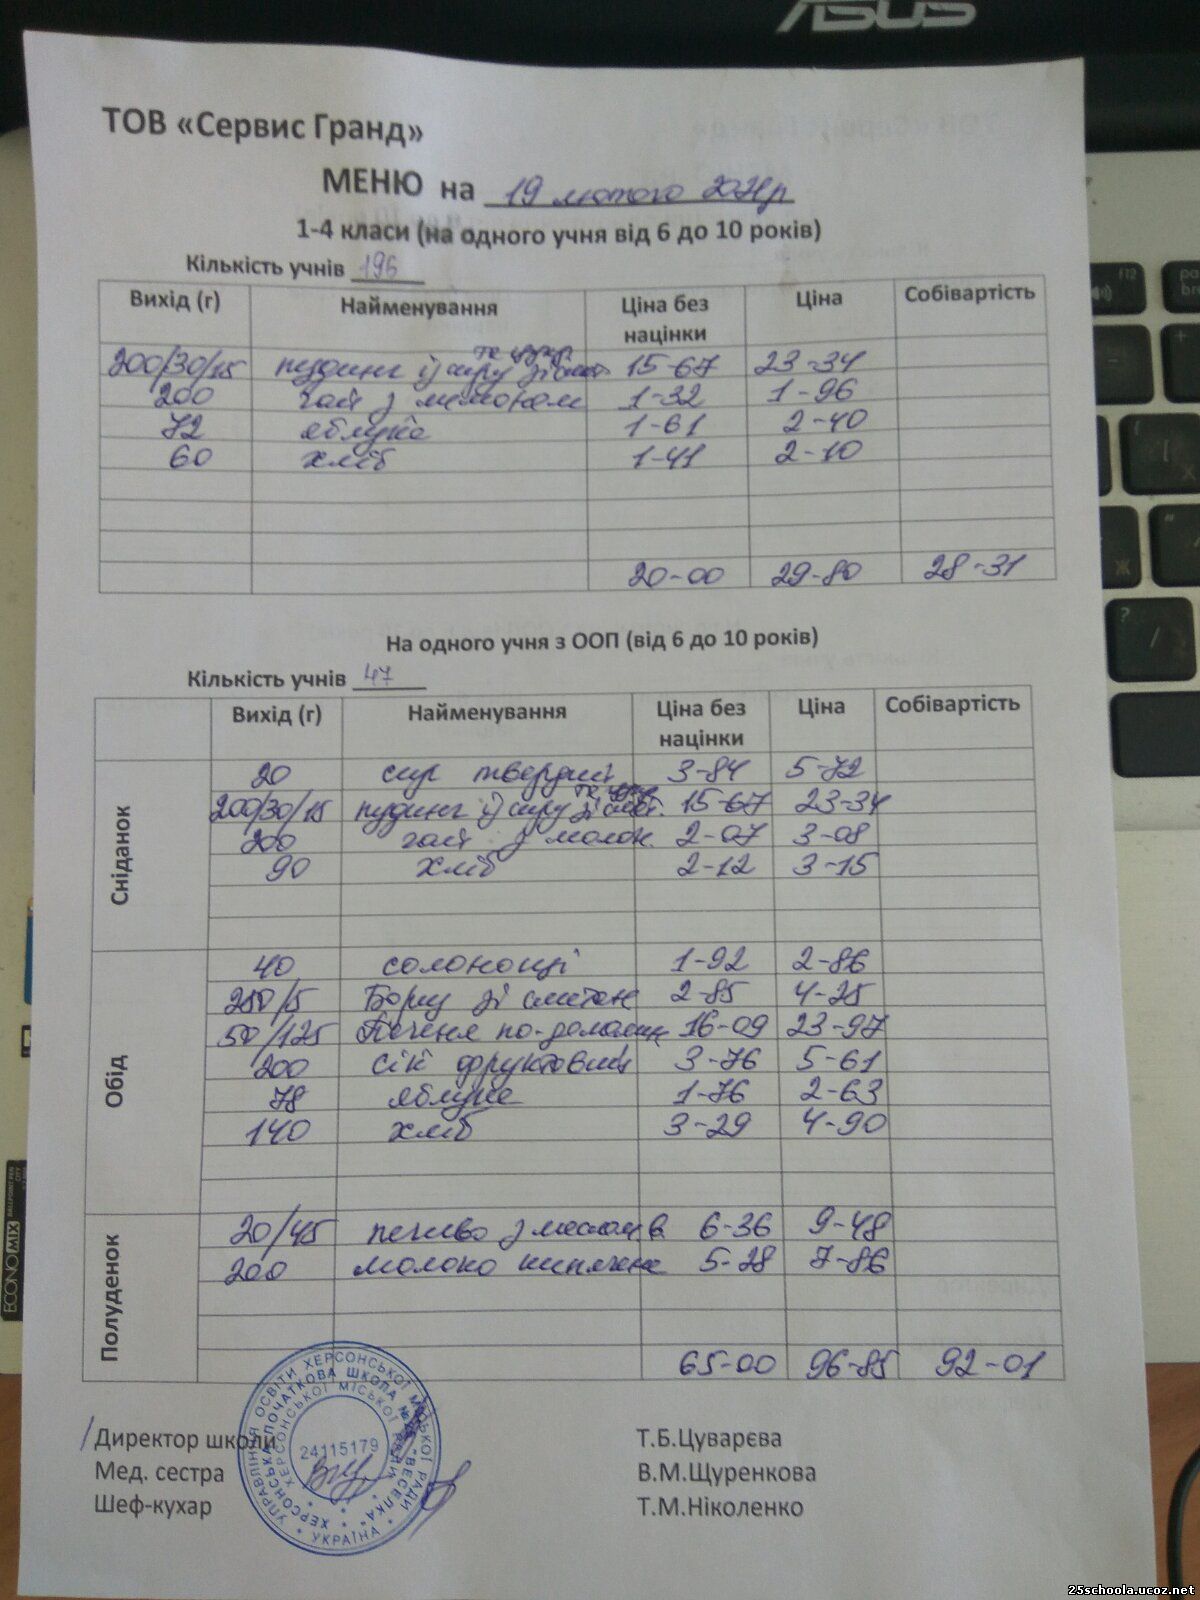 ASUS
ТОВ «Сервис Гранд»
МЕНЮ на 19 лютого 2021р
1-4 класи (на одного учня від 6 до 10 років)
Кількість учнів 196
Вихід (г) Найменування Ціна без націнки Ціна Собівартість
200/30/15 пудинг із сиру зі смет та цукр. 15-67 23-34
200 чай з лимоном 1-32 1-96
72 яблуко 1-61 2-40
60 хліб 1-41 2-10
20-00 29-80 28-31
На одного учня з ООП (від 6 до 10 років)
Кількість учнів 47
Вихід (г) Найменування Ціна без націнки Ціна Собівартість
Сніданок
20 сир твердий 3-84 5-72
200/30/15 пудинг із сиру зі смет. та цукр 15-67 23-34
200 чай з молок. 2-07 3-08
90 хліб 2-12 3-15
Обід
40 солонощі 1-92 2-86
250/5 Борщ зі сметан 2-85 4-25
50/125 Печеня по-домашн 16-09 23-97
200 сік фруктовий 3-76 5-61
78 яблуко 1-76 2-63
140 хліб 3-29 4-90
Полуденок
20/45 печиво з маслом в 6-36 9-48
200 молоко кипячене 5-28 7-86
65-00 96-85 92-01
Директор школи Т.Б.Цуварєва
Мед. сестра В.М.Щуренкова
Шеф-кухар Т.М.Ніколенко
УПРАВЛІННЯ ОСВІТИ ХЕРСОНСЬКОЇ МІСЬКОЇ РАДИ
ХЕРСОНСЬКА ПОЧАТКОВА ШКОЛА "ВЕСЕЛКА"
ХЕРСОНСЬКОЇ МІСЬКОЇ РАДИ
24115179
УКРАЇНА
ECONOMIX
BALLPOINT PEN
CITY
f12
25schoola.ucoz.net